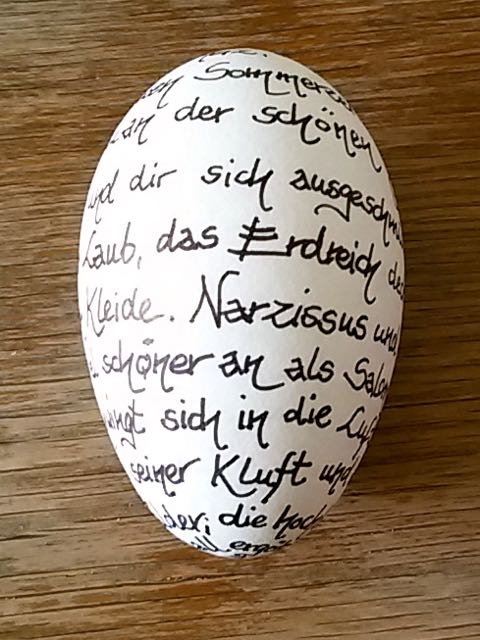 Sommerze
an der schönen
nd dir sich ausgeschm
Laub, das Erdreich de
Kleide. Narzissus und
schöner an als Salo
ingt sich in die Luf
seiner Kluft und
der; die hoch
ergöt